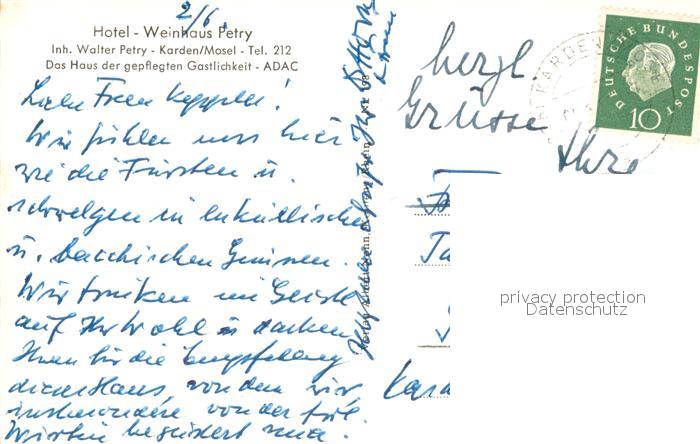 2/6.
Hotel - Weinhaus Petry
Inh. Walter Petry - Karden/Mosel - Tel. 212
Das Haus der gepflegten Gastlichkeit - ADAC
Liebe Frau Keppler!
Wir fühlen uns hier
wie die Fürsten u.
schwelgen in lukullischen
u. bacchischen Genüssen.
Wir trinken im Geiste
auf Ihr Wohl u danken
Ihnen für die Empfehlung
dieses Hauses, von dem wir,
insbesondere von der frdl.
Wirtin begeistert sind.
herzl.
Grüsse
Ihre
KARDEN
DEUTSCHE BUNDESPOST
10
privacy protection
Datenschutz